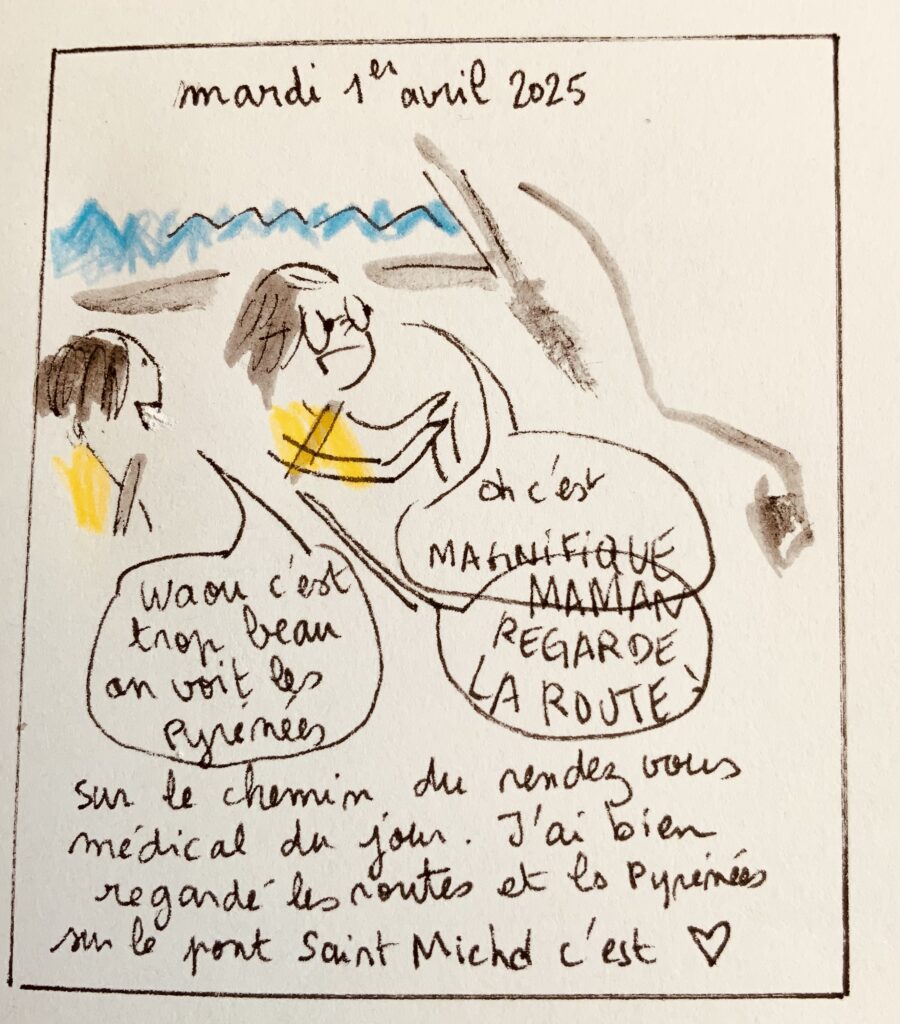 mardi 1er avril 2025
oh c'est
MAGNIFIQUE
MAMAN
REGARDE
LA ROUTE
waou c'est
trop beau
on voit les
Pyrénées
sur le chemin du rendez vous
médical du jour. J'ai bien
regardé les routes et les Pyrénées
sur le pont Saint Michel c'est ♡